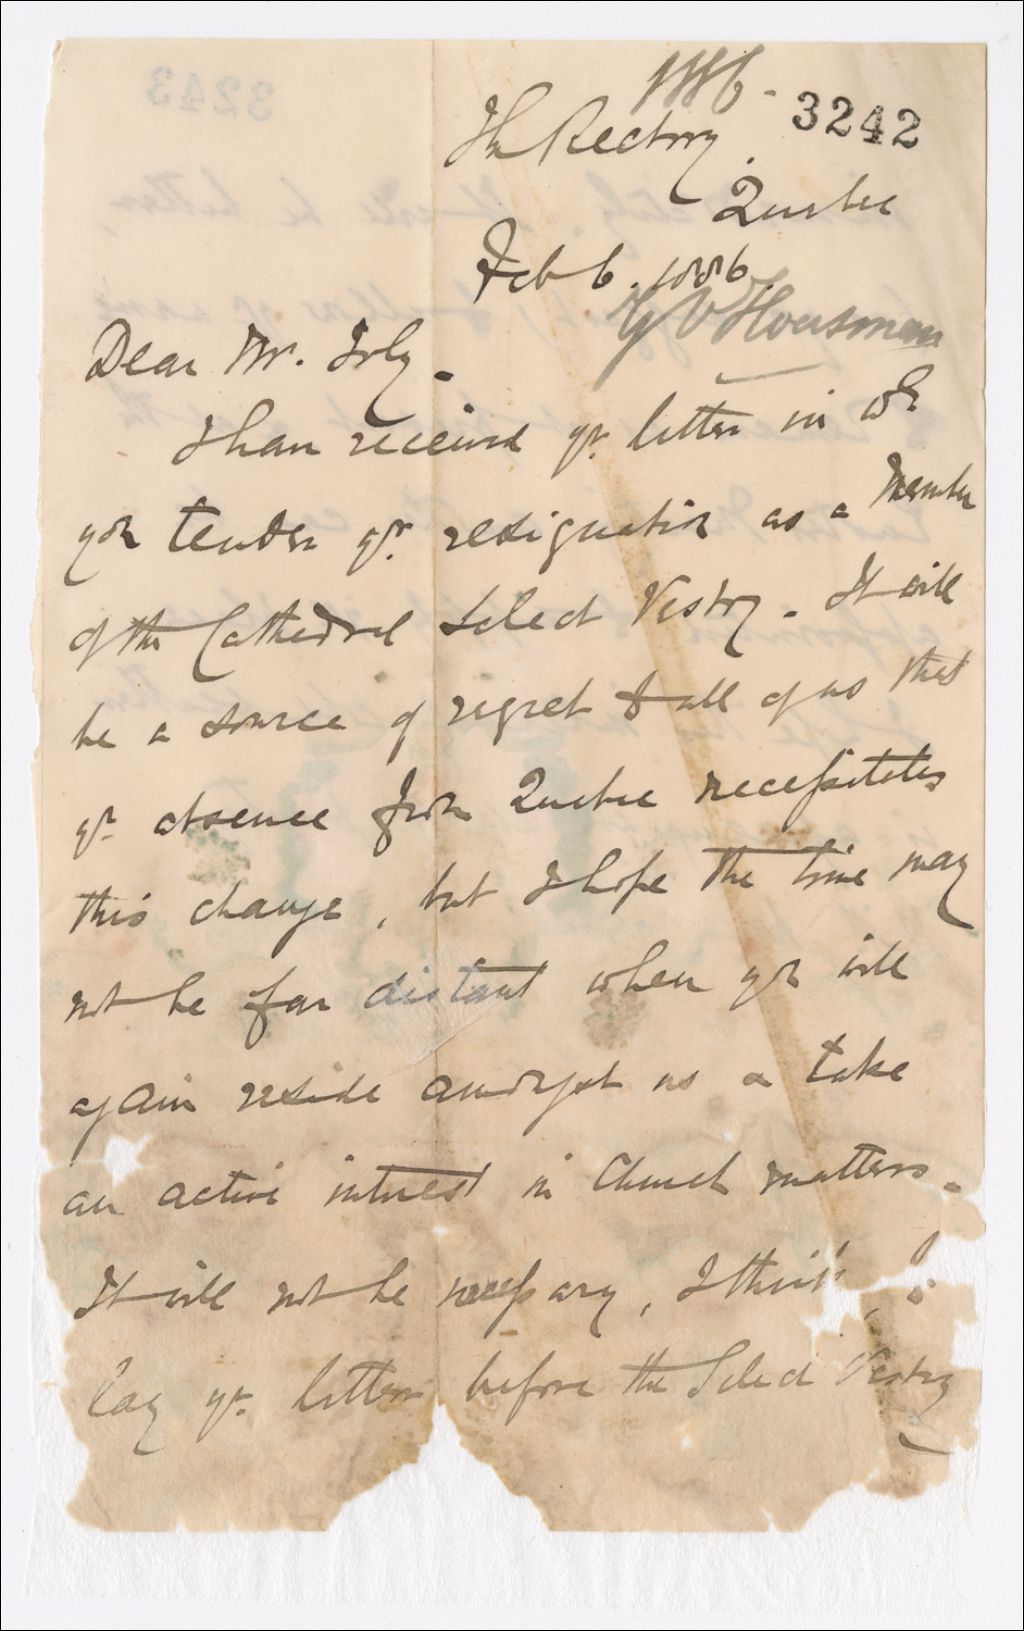 3242
The Rectory.
Quebec
Feb 6. 1886.
G V Housman
Dear Mr. Joly.
I have received yr. letter in wh
you tender yr. resignation as a Member
of the Cathedral Select Vestry. It will
be a source of regret to all of us that
yr. absence from Quebec necessitates
this change, but I hope the time may
not be far distant when you will
again reside amongst us & take
an active interest in Church matters.
It will not be necessary, I think, to
lay yr. letter before the Select Vestry